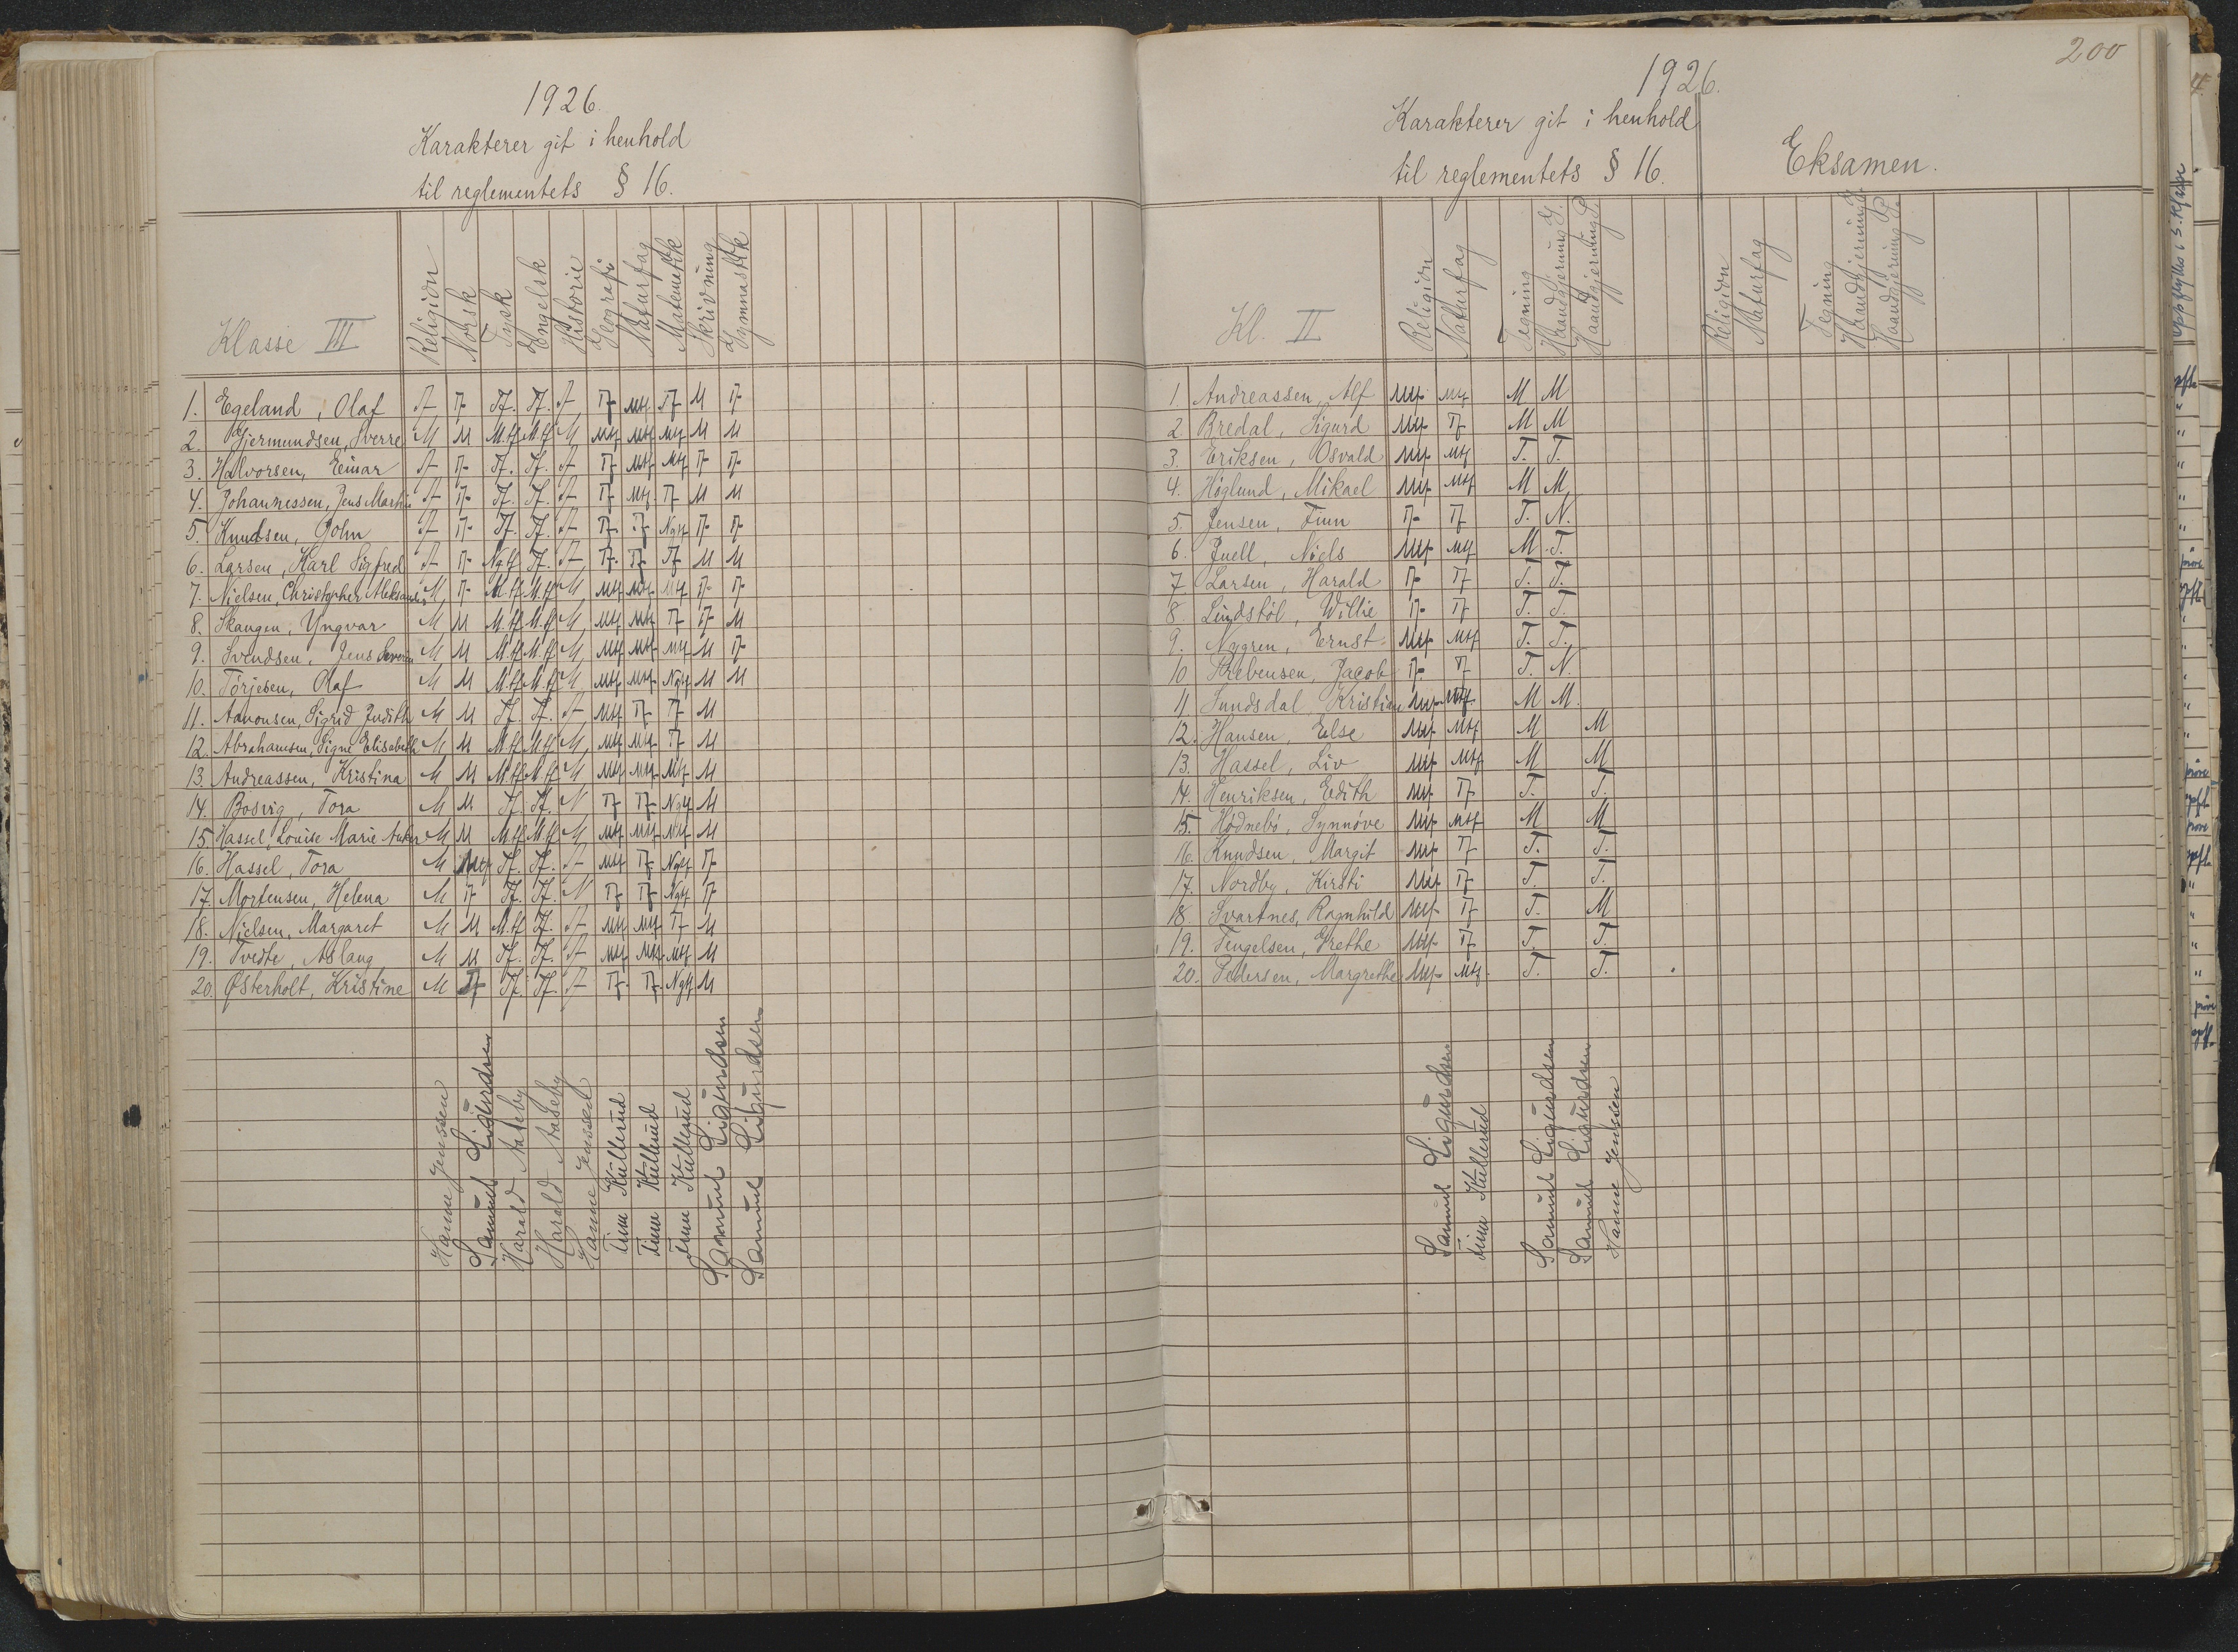 1926.
Karakterer git i henhold
til reglementets § 16.
Klasse III Religion Norsk Tysk Engelsk Historie Geografi Naturfag Matematikk Skrivning Gymnastikk
1. Egeland, Olaf T T Tf. Tf. T Tf Mtf Tf M T
2. Gjermundsen, Sverre M M M.tf M.tf M Mtf Mtf Mtf M M
3. Halvorsen, Einar T T Tf. Tf. T Tf Mtf Mtf T T
4. Johannessen, Jens Martin T T Tf. Tf. T Tf Mtf Tf M M
5. Knudsen, John T T Tf. Tf. T Tf Tf Ngtf T T
6. Larsen, Karl Sigfred T T Ngtf Tf. T Tf Tf Tf M M
7. Nielsen, Christopher Aleksander M T M.tf M.tf M Mtf Mtf Mtf T T
8. Skaugen, Yngvar M M M.tf M.tf M Mtf Mtf Tf T M
9. Svendsen, Jens Severin M M M.tf M.tf M Mtf Mtf Mtf M T
10. Törjesen, Olaf M M M.tf M.tf M Mtf Mtf Ngtf M M
11. Aanonsen, Sigrid Judith M M Tf. Tf. T Mtf Tf Tf M
12. Abrahamsen, Signe Elisabeth M M M.tf M.tf M Mtf Mtf Tf M
13. Andreassen, Kristina M M M.tf M.tf M Mtf Mtf Mtf M
14. Bosvig, Tora M M Tf. Tf. N Tf Tf Ngtf M
15. Hassel, Louise Marie Anker M M M.tf M.tf M Mtf Mtf Mtf M
16. Hassel, Tora M Mtf Tf. Tf. T Mtf Tf Ngtf T
17. Mortensen, Helena M T Tf. Tf. N Tf Tf Ngtf T
18. Nielsen, Margaret M M M.tf Tf. T Mtf Mtf Tf M
19. Tvedte, Aslaug M M Tf. Tf. T Mtf Mtf Mtf M
20. Østerholt, Kristine M T Tf. Tf. T Tf Tf Ngtf M
Hanne Jenssen
Samuel Sigurdsen
Harald Aaseby
Harald Aaseby
Hanne Jenssen
Finn Kullerud
Finn Kullerud
Finn Kullerud
Samuel Sigurdsen
Samuel Sigurdsen
200
1926.
Karakterer git i henhold
til reglementets § 16.
Eksamen.
Kl. II Religion Naturfag Tegning Haandgjerning G. Haandgjerning P. Religion Naturfag Tegning Haandgjerning G. Haandgjerning P.
1. Andreassen, Alf Mtf Mtf M M
2. Bredal, Sigurd Mtf Tf M M
3. Eriksen, Osvald Mtf Mtf T. T.
4. Höglund, Mikael Mtf Mtf M M
5. Jensen, Finn Tf Tf T. N.
6. Juell, Niels Mtf Mtf M T.
7. Larsen, Harald Tf Tf T. T.
8. Lindstöl, Willie Tf Tf T. T.
9. Nygren, Ernst Mtf Mtf T. T.
10. Prebensen, Jacob Tf Tf T. N.
11. Sundsdal, Kristian Mtf Mtf M M
12. Hansen, Else Mtf Mtf M M
13. Hassel, Liv Mtf Mtf M M
14. Henriksen, Edith Mtf Tf T. T.
15. Hödnebö, Synnöve Mtf Mtf M M
16. Knudsen, Margit Mtf Tf T. T.
17. Nordby, Kirsti Mtf Tf T. T.
18. Svartnes, Ragnhild Mtf Tf T. M
19. Tengelsen, Grethe Mtf Tf T. T.
20. Pedersen, Margrethe Mtf Mtf T. T.
Samuel Sigurdsen
Finn Kullerud
Samuel Sigurdsen
Samuel Sigurdsen
Hanne Jenssen